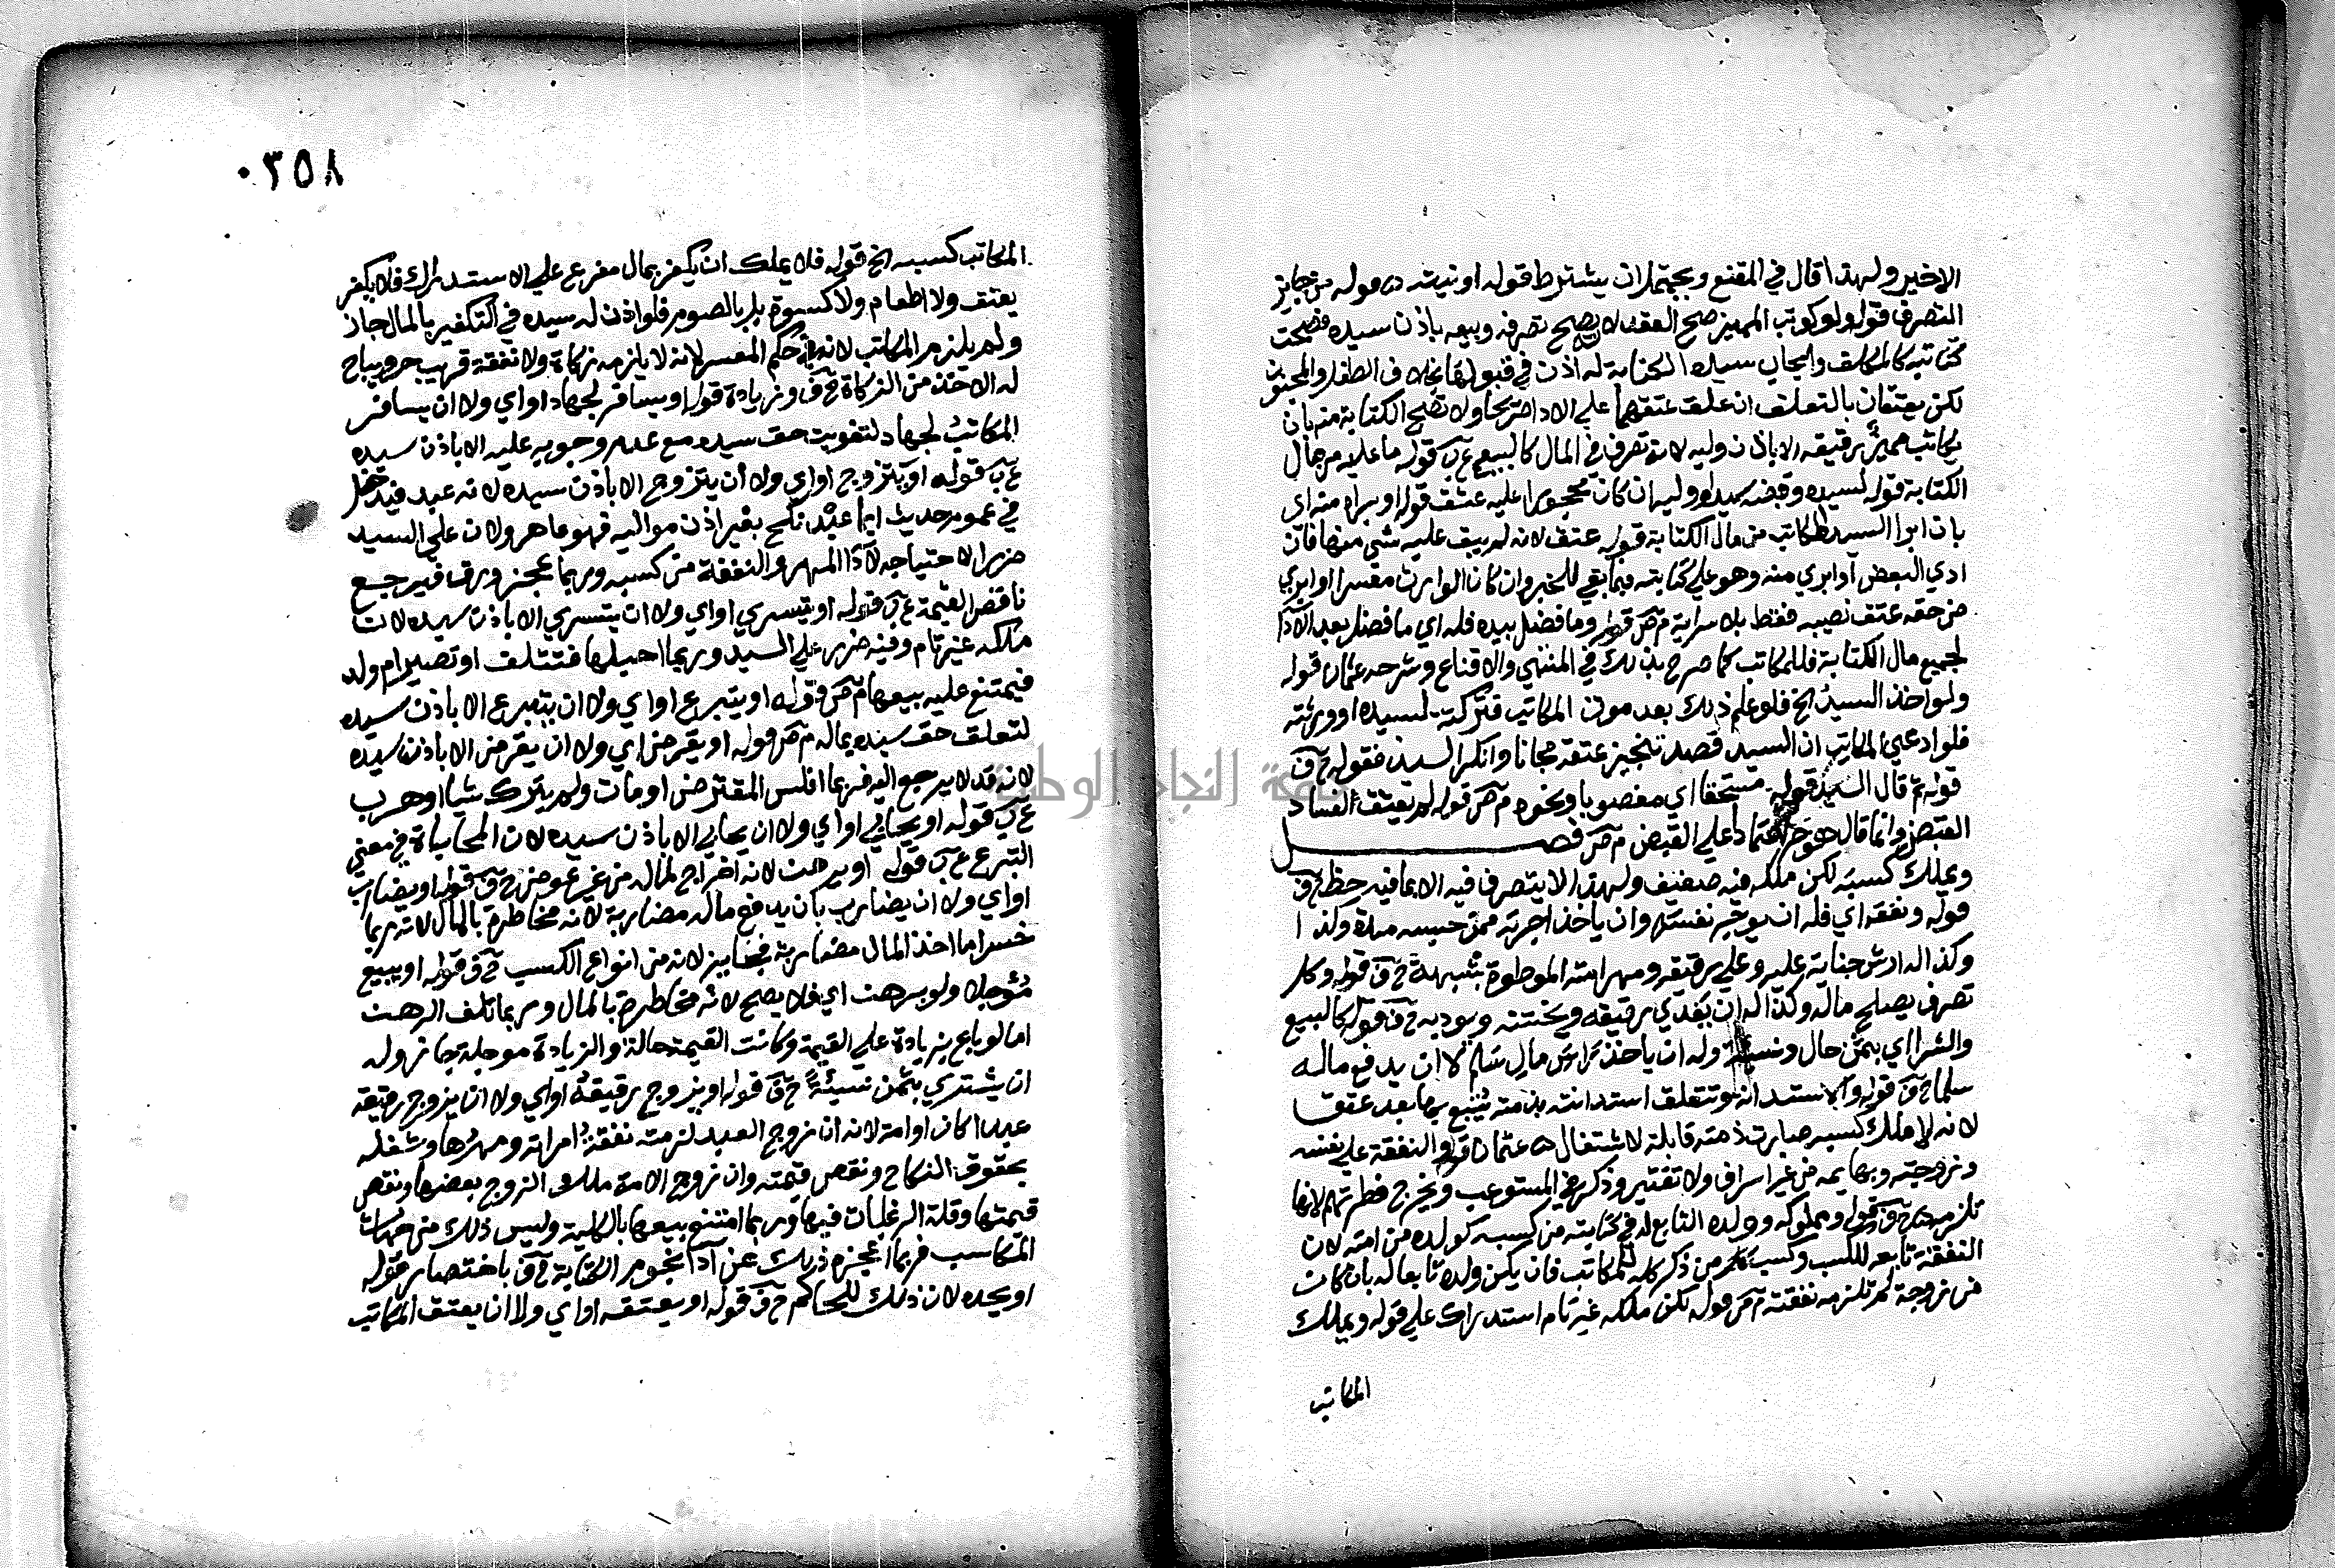 الاخير ولهذا قال في المقنع ويحتمل ان يشترط قوله او نيته قوله من جايز
التصرف قوله ولو كوتب المميز صح العقد لانه يصح تصرفه وبيعه باذن سيده فصحت
كتابته كالمكلف وايجاب سيده الكتابة له اذن في قبولها بخلاف الطفل والمجنون
لكن يعتقان بالتعليق ان علق عتقهما على الاداء صريحا ولا تصح الكتابة منه بان
يكاتب مميز رقيقه الا باذن وليه لانه تصرف في المال كالبيع ع ب قوله ما عليه من مال
الكتابة قوله لسيده وقبضه سيده او وليه ان كان محجورا عليه عتق قوله او براه منه اي
بان ابرا السيد المكاتب من مال الكتابة قوله عتق لانه لم يبق عليه شي منها فان
ادي البعض او ابري منه وهو علي كتابته فيما بقي للخبر وان كان الوارث معسرا او ابري
من حقه عتق نصيبه فقط بلا سراية م ص قوله وما فضل بيده فله اي ما فضل بعد الادا
لجميع مال الكتابة فللمكاتب كما صرح بذلك في المنتهي والاقناع وشرحه عثمان قوله
ولو اخذ السيد الخ فلو علم ذلك بعد موت المكاتب فتركته لسيده او ورثته
فلو ادعي المكاتب ان السيد قصد تنجيز عتقه مجانا وانكر السيد فقوله ح ق
قوله ثم قال السيد قوله مستحقا اي مغصوبا ونحوه م ص قوله لم يعتق لفساد
القبض وانما قال هو حر اعتمادا علي القبض م ص فصل
ويملك كسبه لكن ملكه فيه ضعيف ولهذا لا يتصرف فيه الا بما فيه حظ ح ق
قوله ونفعه اي فله ان يوجر نفسه وان ياخذ اجرته ممن حبسه مدة ولذا
وكذا له ارش جناية عليه وعلي رقيقه ومهر امته الموطوة بشبهة ح ق قوله وكل
تصرف يصلح ماله وكذا له ان يفدي رقيقه ويختنه ويوديه ح ق قوله كالبيع
والشرا اي بثمن حال وله ان ياخذ راس مال سلم لا ان يدفع ماله
سلما ح ق قوله والاستدانة وتتعلق استدانته بذمته يتبع بها بعد عتق
لانه لما ملك كسبه صارت ذمته قابلة للاشتغال ه عثمان قوله والنفقة علي نفسه
وزوجته وبهايمه من غير اسراف ولا تقتير وذكر في المستوعب ويخرج فطرتهم لانها
تلزمه ح ق قوله ومملوكه وولده التابع له في كتابته من كسبه كولده من امته لان
النفقة تابعه للكسب وكسب من ذكر كله للمكاتب فان يكن ولده تابعا له بان كان
من زوجة لم تلزمه نفقته م ص قوله لكن ملكه غير تام استدراك علي قوله ويملك
المكاتب
٠٣٥٨
المكاتب كسبه الخ قوله فلا يملك ان يكفر بمال مفرع علي الاستدراك فلا يكفر
بعتق ولا اطعام ولا كسوة بل بالصوم فلو اذن له سيده في التكفير بالمال جاز
ولم يلزم المكاتب لانه في حكم المعسر لانه لا يلزمه زكاة ولا نفقة قريب حر ويباح
له الاخذ من الزكاة ح ق وزيادة قوله او يسافر لجهاد او اي ولا ان يسافر
المكاتب لجهاد لتفويت حق سيده مع عدم وجوبه عليه الا باذن سيده
ع ب قوله او يتزوج او اي ولا ان يتزوج الا باذن سيده لانه عبد فيدخل
في عموم حديث ايما عبد نكح بغير اذن مواليه فهو عاهر ولان علي السيد
ضررا لاحتياجه لادا المهر والنفقة من كسبه وربما عجز ورق فيرجع
ناقص القيمة ع ب قوله او يتسري او اي ولا ان يتسري الا باذن سيده لان
ملكه غير تام وفيه ضرر علي السيد وربما احبلها فتتلف او تصير ام ولد
فيمتنع عليه بيعها م ص قوله او يتبرع او اي ولا ان يتبرع الا باذن سيده
لتعلق حق سيده بماله م ص قوله او يقرض اي ولا ان يقرض الا باذن سيده
لانه قد لا يرجع اليه فربما افلس المقترض او مات ولم يترك شيا او هرب
ع ب قوله او يحابي او اي ولا ان يحابي الا باذن سيده لان المحاباة في معني
التبرع ع ب قوله او يرهن لانه اخراج لماله من غير عوض ح ق قوله او يضارب
او اي ولا ان يضارب بان يدفع ماله مضاربة لانه مخاطرة بالمال لانه ربما
خسر اما اخذ المال مضاربة فجايز لانه من انواع الكسب ح ق قوله او يبيع
مؤجلا ولو برهن اي فلا يصح لانه مخاطرة بالمال وربما تلف الرهن
اما لو باع بزيادة علي القيمة وكانت القيمة حالة والزيادة موجلة جاز وله
ان يشتري بثمن نسيئة ح ق قوله او يزوج رقيقه او اي ولا ان يزوج رقيقه
عبدا كان او امة لانه ان زوج العبد لزمته نفقة امراته ومهرها وشغله
بحقوق النكاح ونقص قيمته وان زوج الامة ملك الزوج بعضها ونقص
قيمتها وقلة الرغبات فيها وربما امتنع بيعها بالكلية وليس ذلك من جهات
المكاسب فربما اعجزه ذلك عن ادا نجوم الكتابة ح ق باختصار قوله
او يحده لان ذلك للحاكم ح ق قوله او يعتقه او اي ولا ان يعتق المكاتب
جامعة النجاح الوطنية